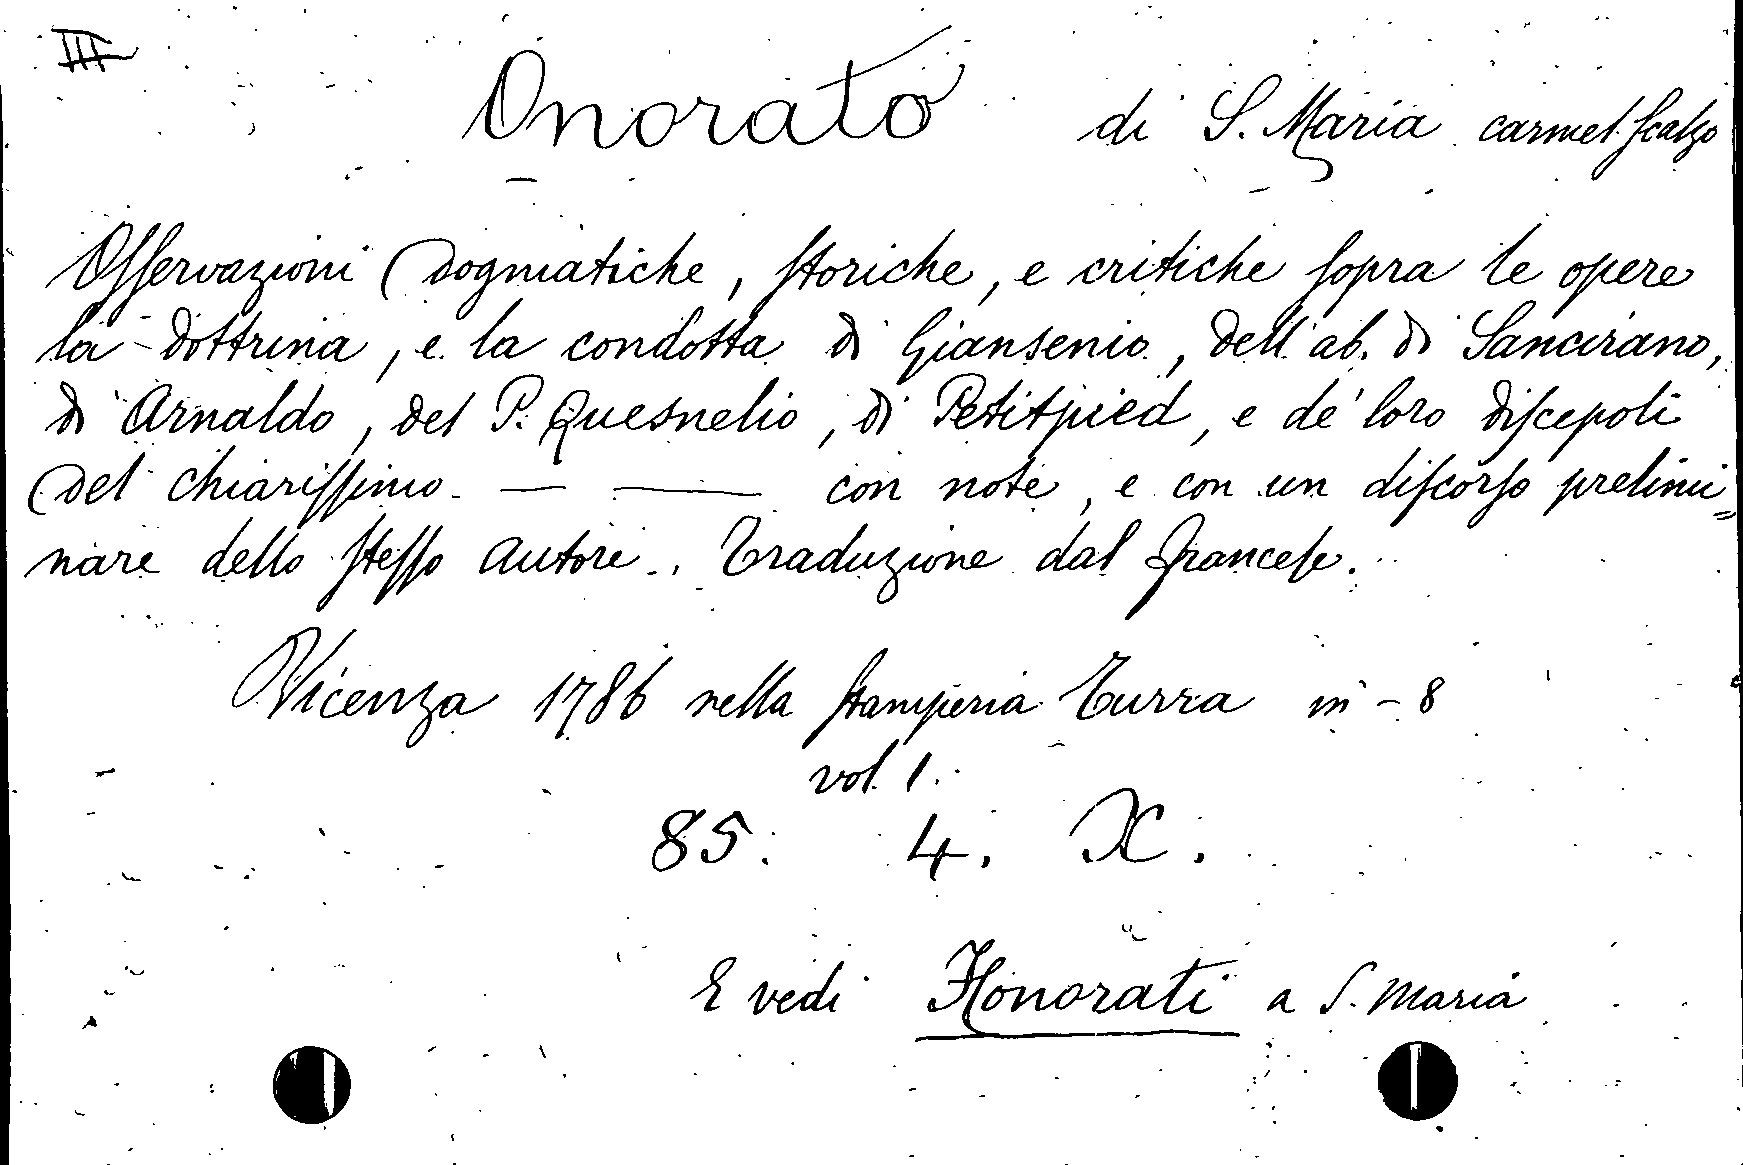 III
Onorato di S. Maria carmel. scalzo
Osservazioni Dogmatiche, storiche, e critiche sopra le opere
la dottrina, e la condotta di Giansenio, dell'ab. di Sancirano,
di Arnaldo, del P. Quesnelio, di Petitpied, e de' loro discepoli
Del chiarissimo — — con note, e con un discorso prelimi=
nare dello stesso autore. Traduzione dal francese.
Vicenza 1786 nella stamperia Turra in-8
vol. 1.
85. 4. X.
E vedi Honorati a S. Maria